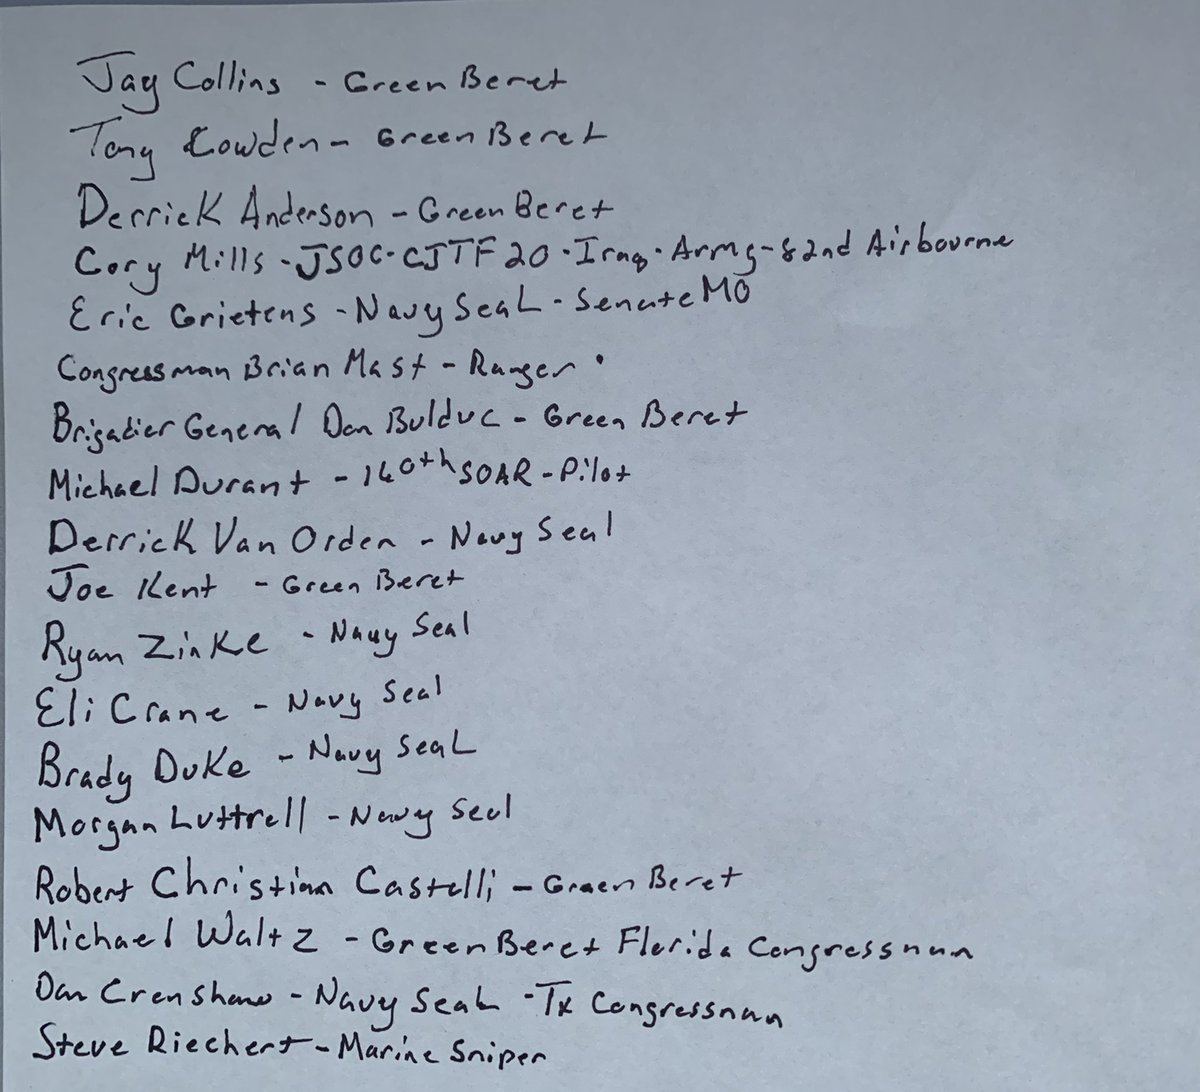 Jay Collins - Green Beret
Tony Cowden - Green Beret
Derrick Anderson - Green Beret
Cory Mills - JSOC - CJTF 20 · Iraq · Army - 82nd Airbourne
Eric Grietens - Navy SeaL - Senate MO
Congressman Brian Mast - Ranger
Brigadier General Don Bulduc - Green Beret
Michael Durant - 160th SOAR - Pilot
Derrick Van Orden - Navy Seal
Joe Kent - Green Beret
Ryan Zinke - Navy Seal
Eli Crane - Navy Seal
Brady Duke - Navy SeaL
Morgan Luttrell - Navy Seal
Robert Christian Castelli - Green Beret
Michael Waltz - Green Beret Florida Congressman
Dan Crenshaw - Navy SeaL - Tx Congressman
Steve Riechert - Marine Sniper